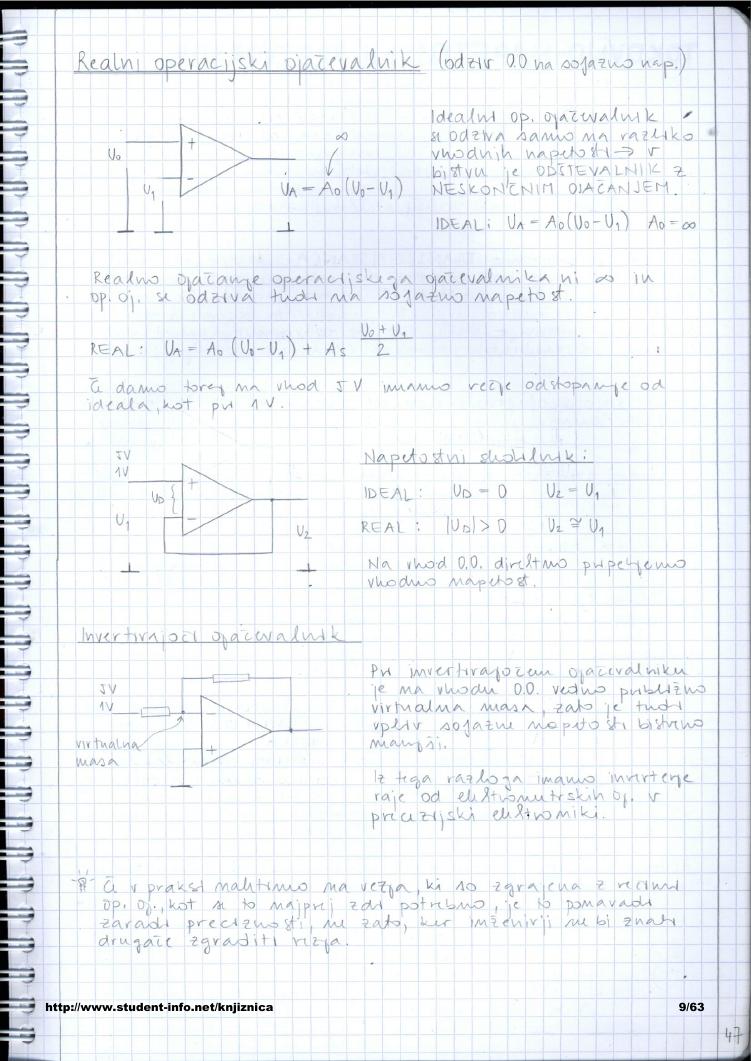 Realni operacijski ojačevalnik (odziv O.O na sofazno nap.)
Idealni op. ojačevalnik
se odziva samo na razliko
vhodnih napetosti → v
bistvu je ODŠTEVALNIK Z
NESKONČNIM OJAČANJEM.
IDEAL: UA = A0(U0-U1) A0 = ∞
U0
U1
+
-
∞
UA = A0(U0-U1)
Realno ojačanje operacijskega ojačevalnika ni ∞ in
op. oj. se odziva tudi na sofazno napetost.
REAL: UA = A0 (U0-U1) + AS (U0 + U1)/2
Če damo torej na vhod 5V imamo večje odstopanje od
ideala, kot pri 1V.
5V
1V
UD
U1
+
-
U2
Napetostni sledilnik:
IDEAL: UD = 0 U2 = U1
REAL: |UD| > 0 U2 ≅ U1
Na vhod O.O. direktno pripeljemo
vhodno napetost.
Invertirajoči ojačevalnik
5V
1V
-
+
virtualna
masa
Pri invertirajočem ojačevalniku
je na vhodu O.O. vedno približno
virtualna masa, zato je tudi
vpliv sofazne napetosti bistveno
manjši.
Iz tega razloga imamo inverterje
raje od elektrometrskih oj. v
precizijski elektroniki.
Če v praksi naletimo na vezja, ki so zgrajena z večimi
op. oj., kot se to najprej zdi potrebno, je to ponavadi
zaradi preciznosti, ne zato, ker inženirji ne bi znali
drugače zgraditi vezja.
http://www.student-info.net/knjiznica
9/63
47